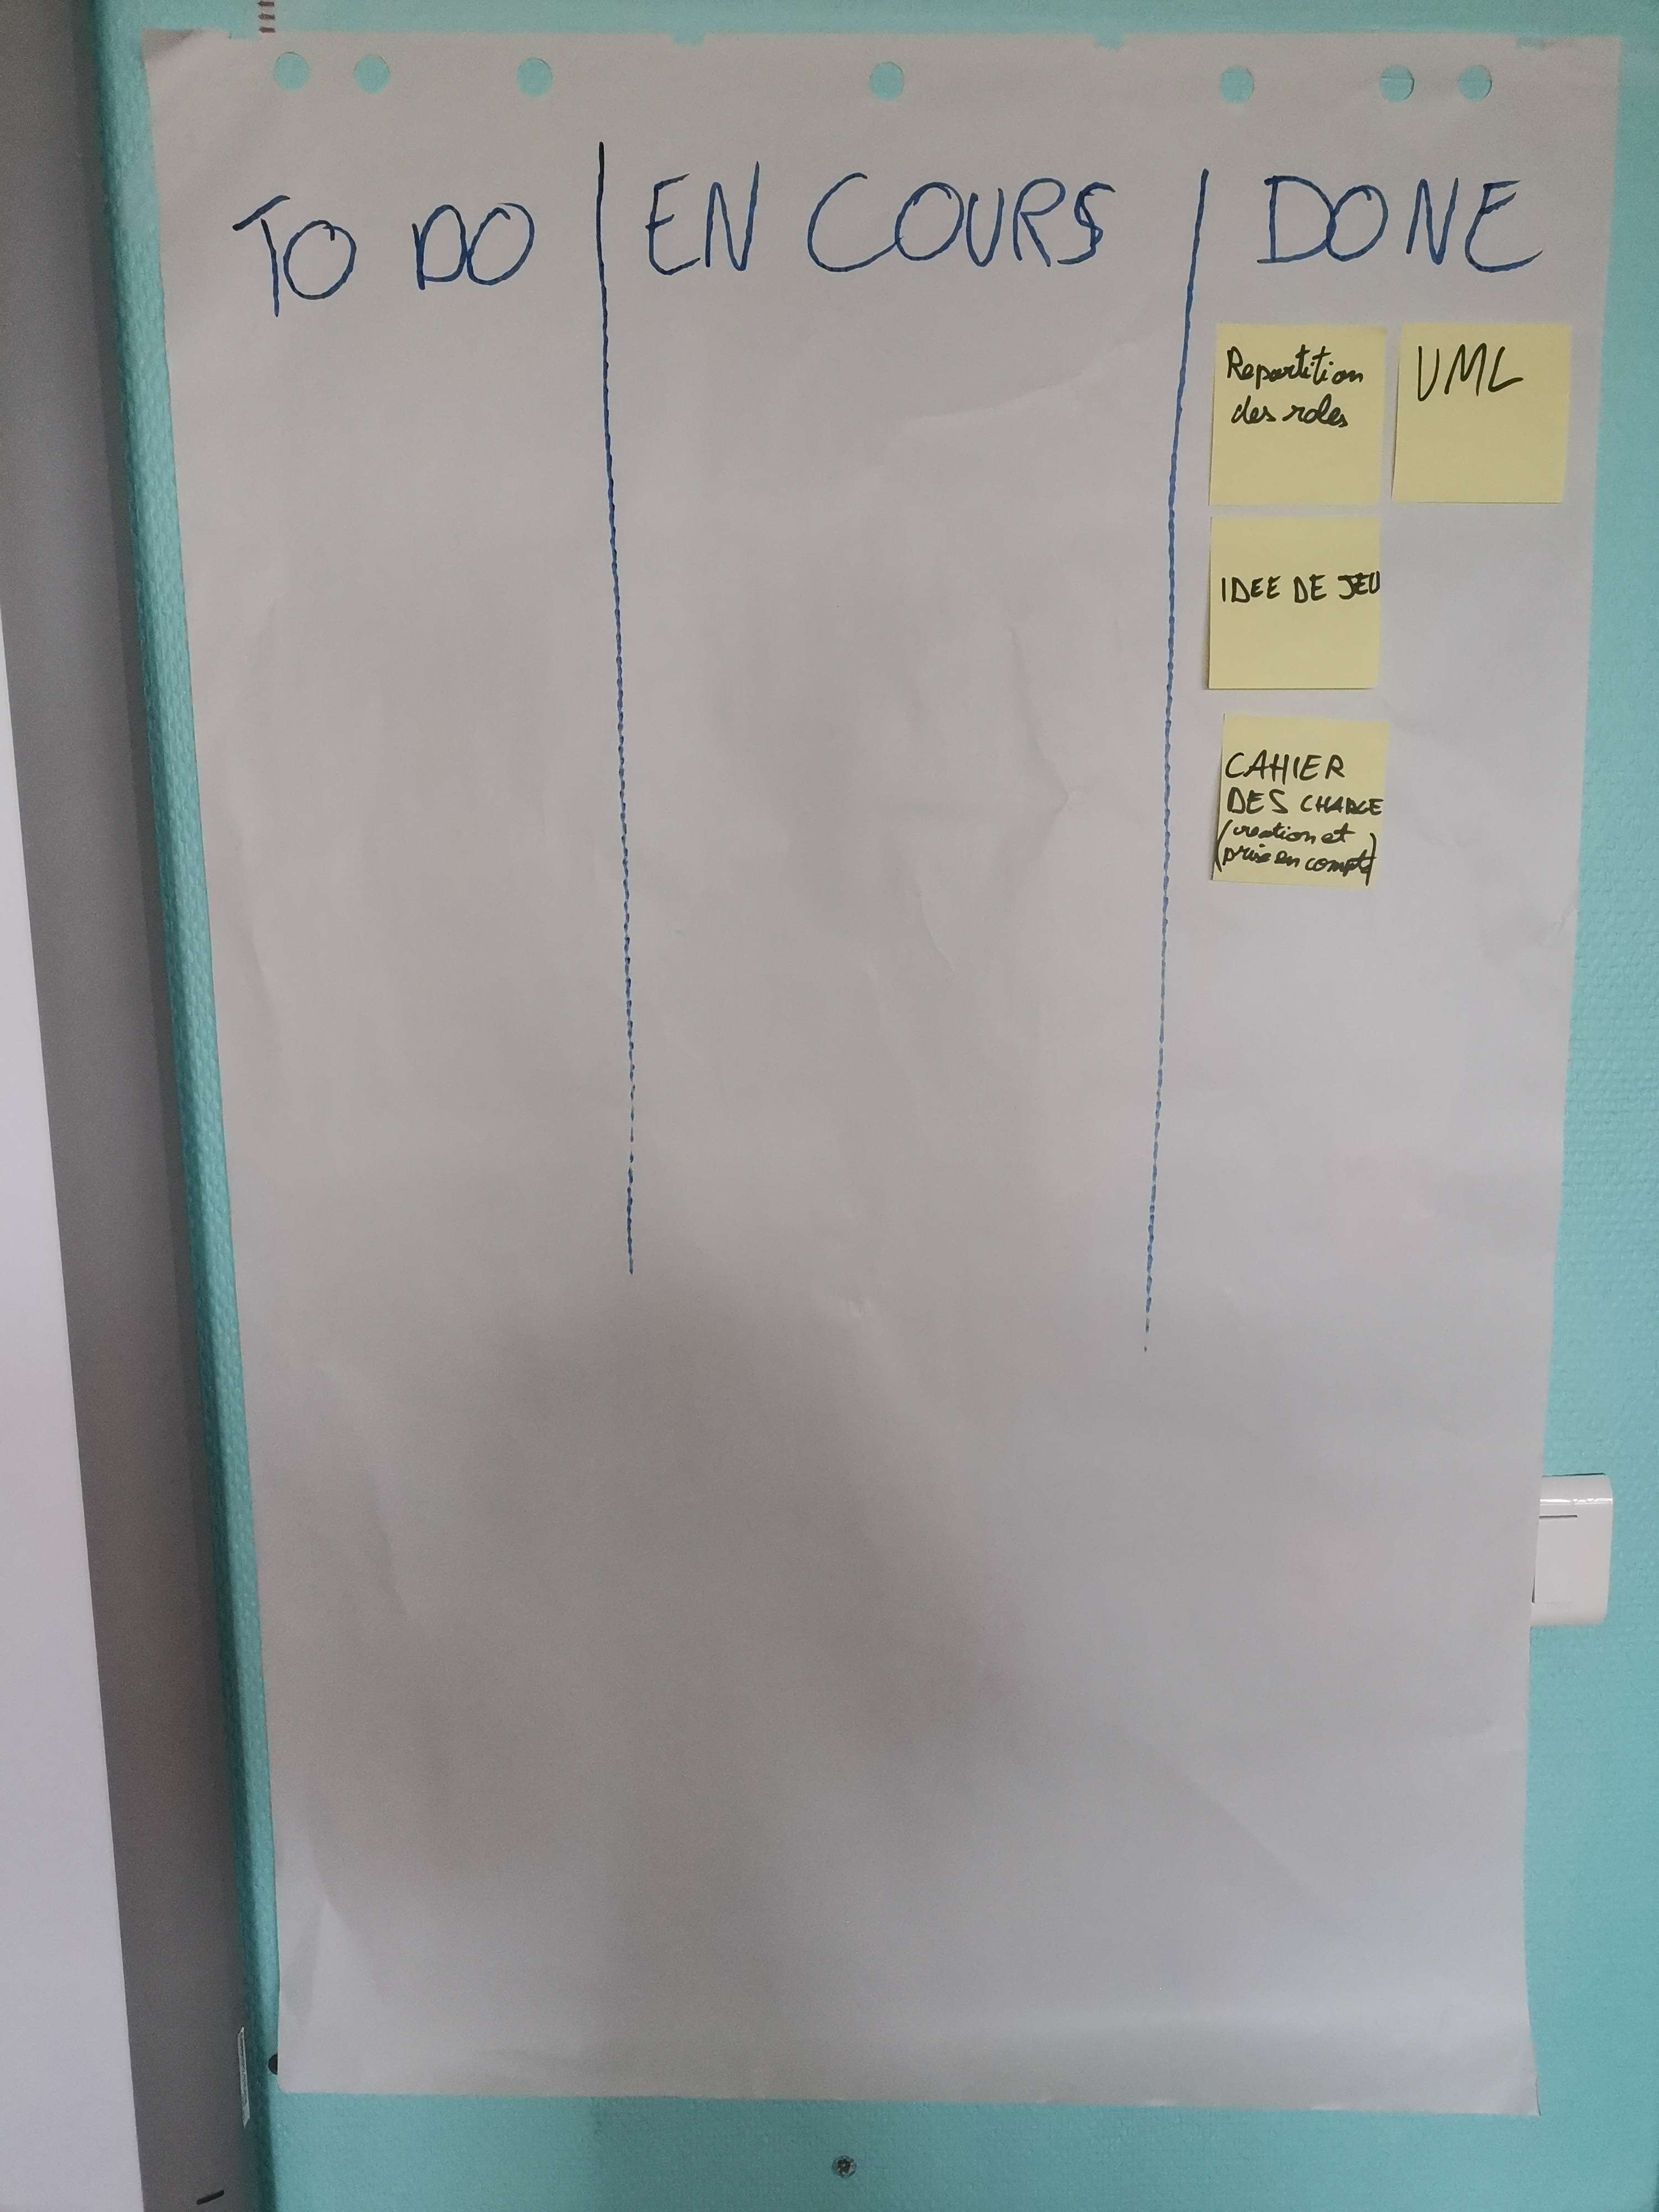 TO DO
EN COURS
DONE
Repartition
des roles
UML
IDEE DE JEU
CAHIER
DES CHARGE
(creation et
prise en compte)